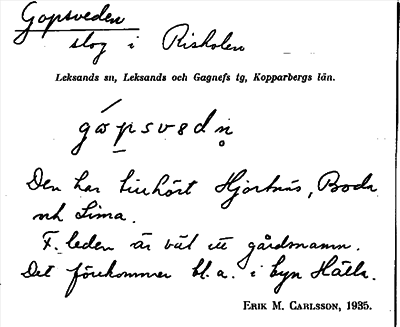 Gopsveden
slog i Risholen
Leksands sn, Leksands och Gagnefs tg, Kopparbergs län.
gɷ́p̠svedn̥
Den har tillhört Hjortnäs, Boda
och Sima.
F. leden är väl ett gårdsnamn.
Det förekommer bl. a. i byn Hälla.
ERIK M. CARLSSON, 1935.